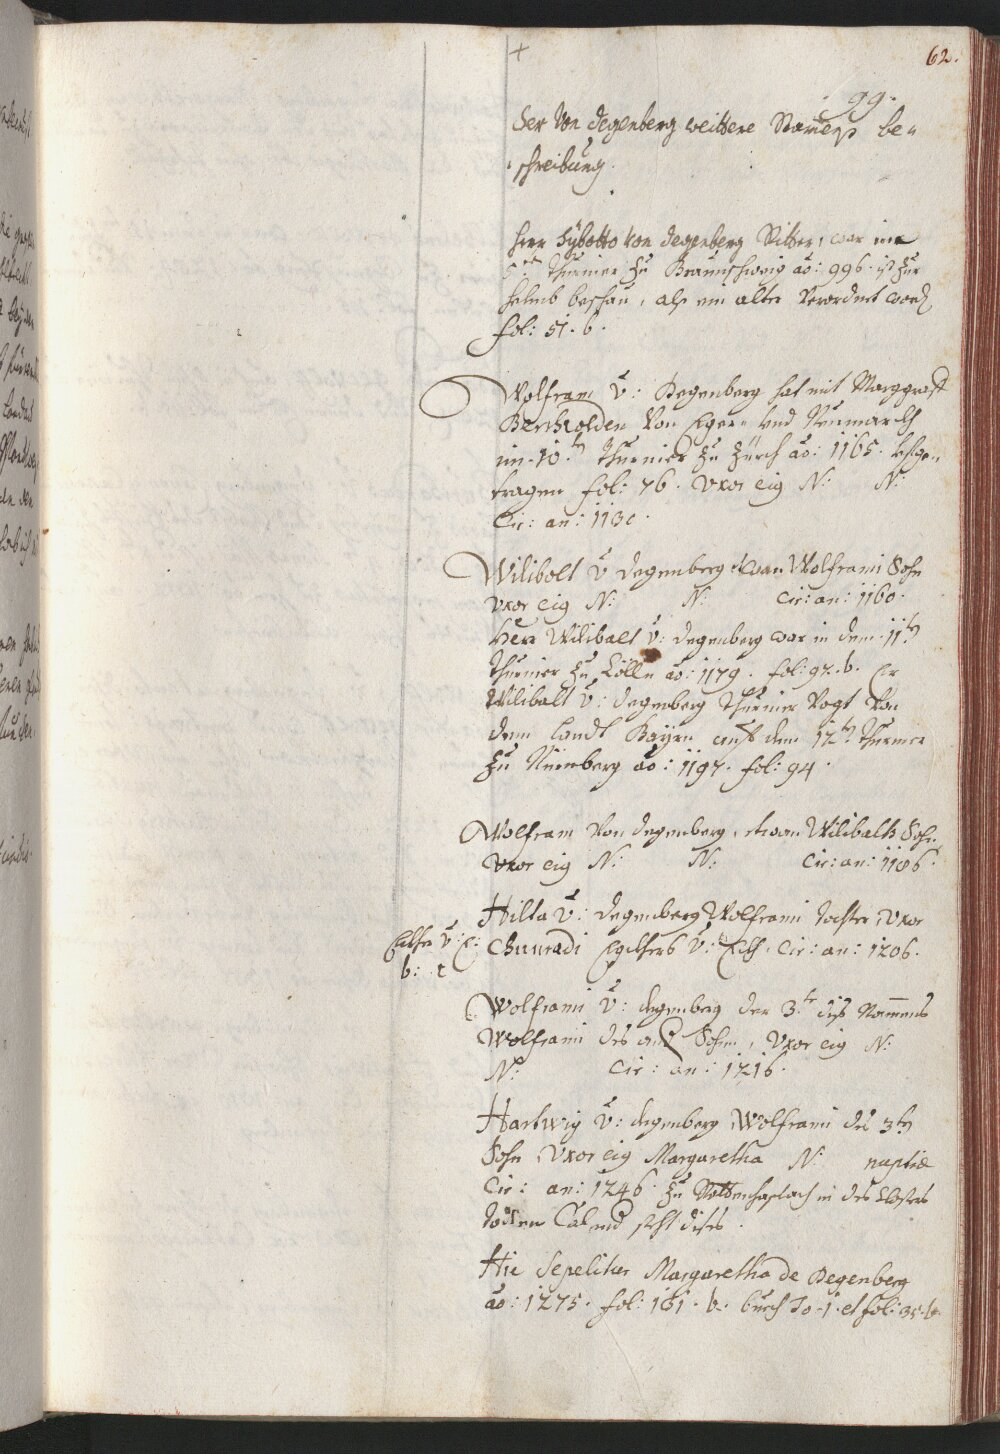 +
62.
99.
Der Von Degenberg weittere Stamens be-
schreibung.
Herr Sÿbotto von Degenberg Ritter, war im
5.ten Thurnier zu Braunschweig ao: 996. ist zur
helmb beschau, als ein alter Verordnet word
fol: 51. b.
Wolfram v: Degenberg hat mit Marggraff
Berchtolden Von Eger und Neumarch
im 10.ten Thurnier zu Zürch ao: 1165. beyge-
tragen fol: 76. Vxor eig N: N:
Cir: an: 1130.
Wilibolt v Degenberg etwan Wolframi Sohn
Vxor eig N: N: Cir: an: 1160.
Herr Wilibalt v: Degenberg war in dem 11.ten
Thurnier zu Cölln ao: 1179. fol: 92. b. Er
Wilibalt v: Degenberg Thurnier Vogt Von
dem Landt Bayrn auf dem 12.ten Thurnier
zu Nürnberg ao: 1197. fol: 94.
Wolfram Von Degenberg, etwan Wilibalts Sohn
Vxor eig N: N: Cir: an: 1186.
Hilta v: Degenberg Wolframi tochter, Vxor
Chunradi v: Cir: an: 1206.
b:
Wolframi v: Degenberg der 3.te diß Nammens
Wolframi des Sohn, Vxor eig N:
N: Cir: an: 1216.
Hartwig v: Degenberg, Wolframi des 3.ten
Sohn, Vxor eig Margaretha N: nuptiæ
Cir: an: 1246. zu in des Closters
todten Calend steht dises.
Hie Sepelitur Margaretha de Degenberg
ao: 1275. fol: 131. b. To. 1. et fol: 35. b.